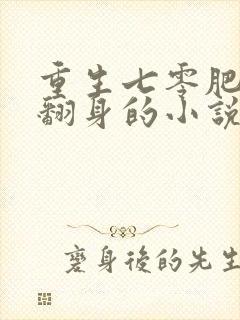 重生七零肥
翻身的小説
變身後的先生